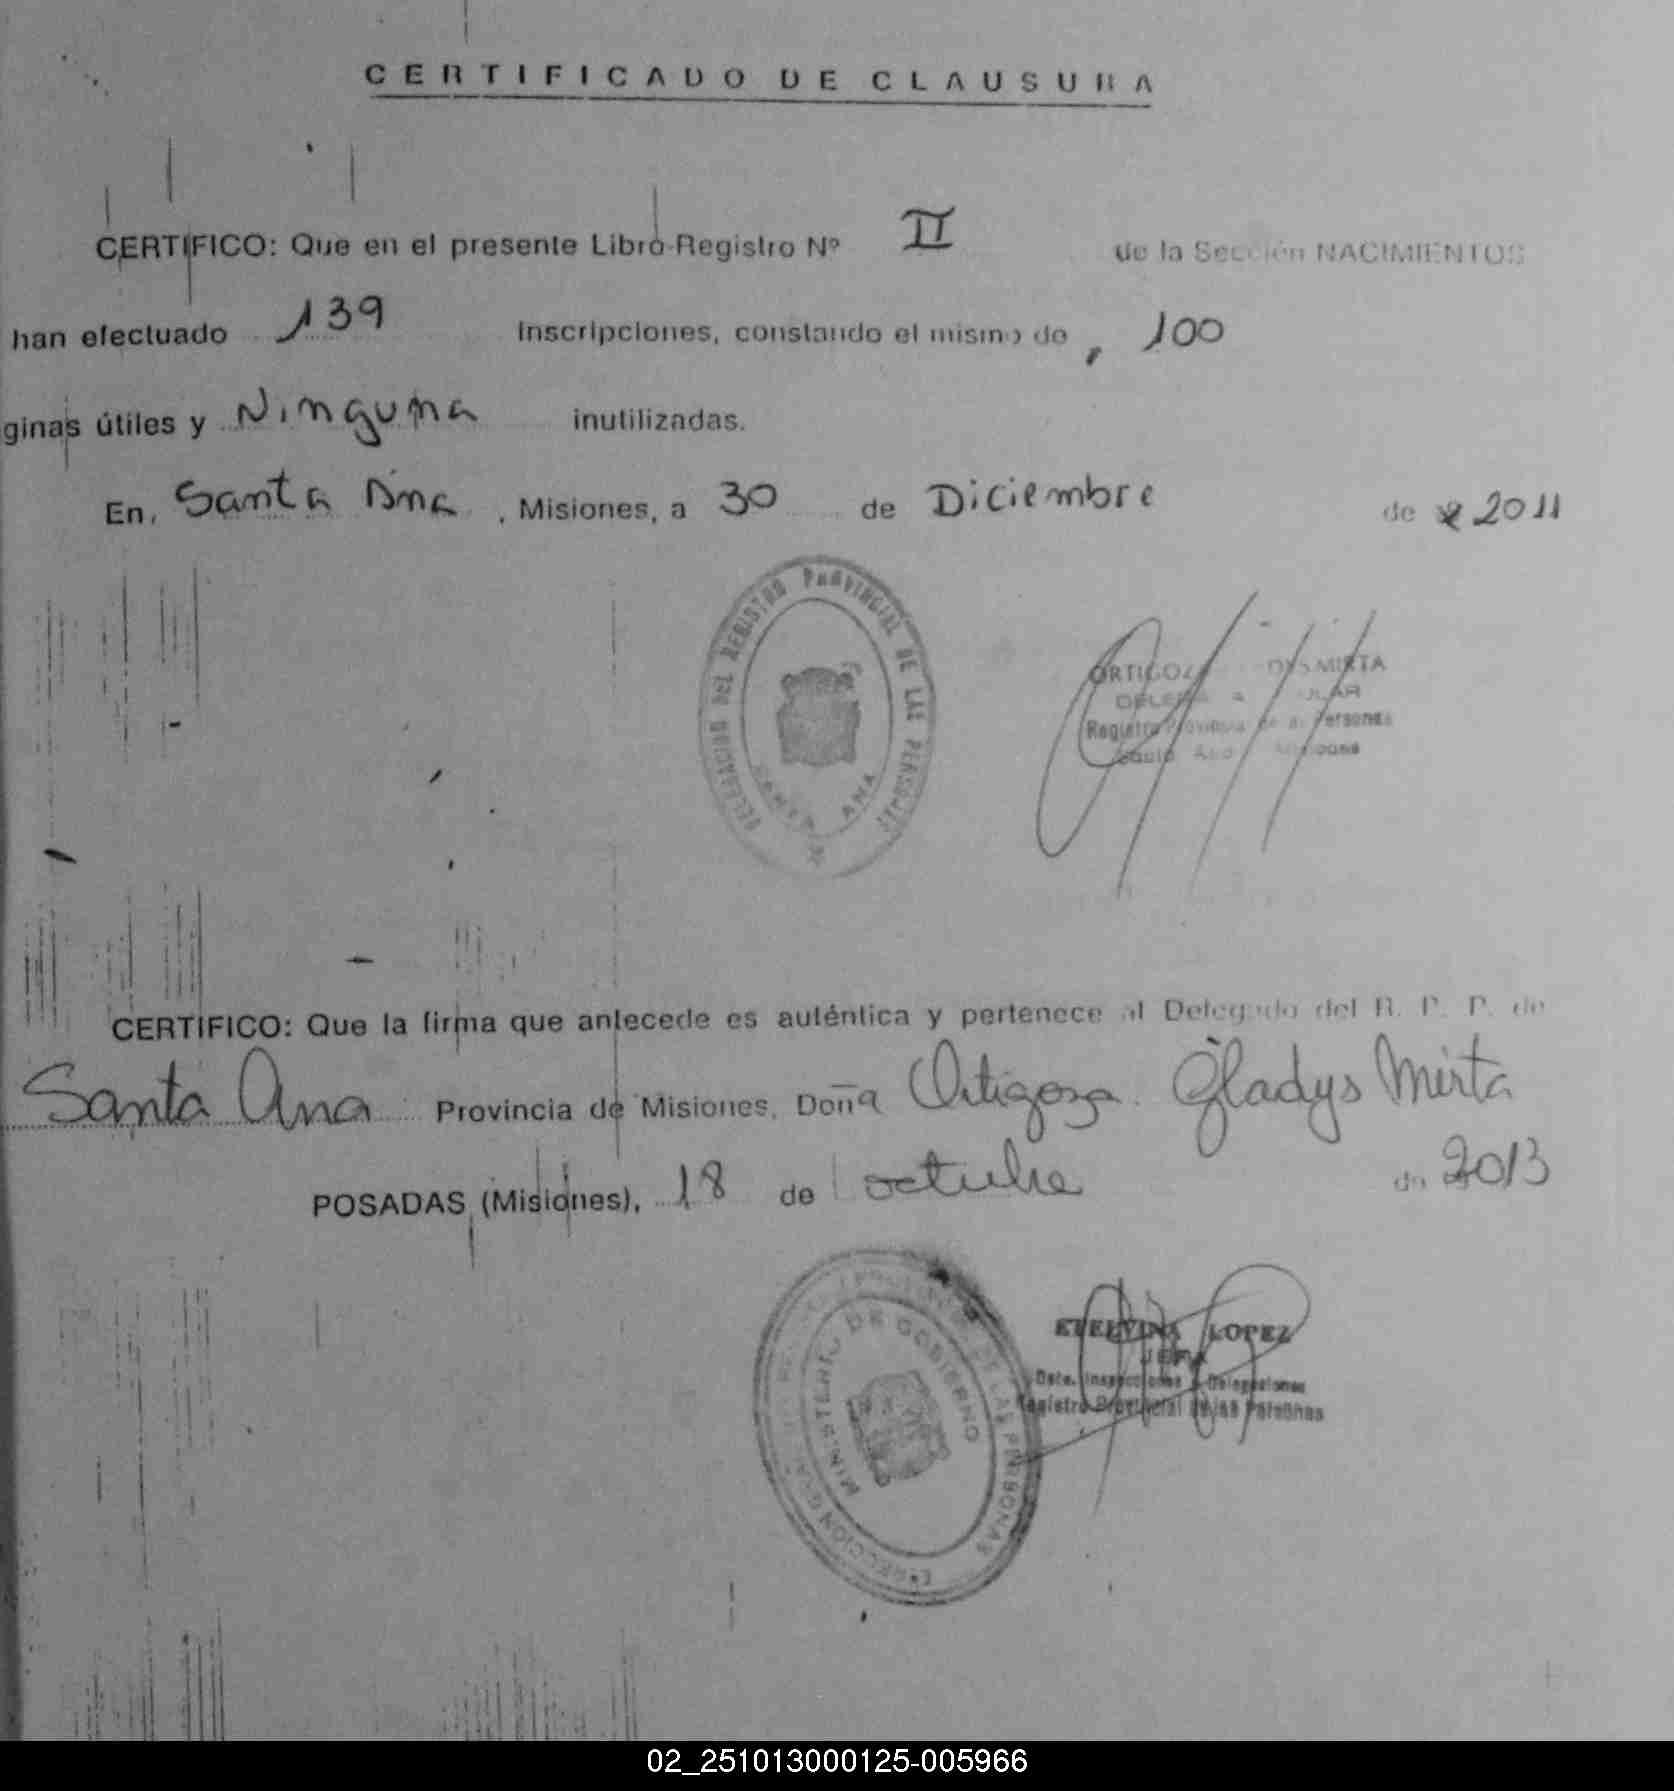 CERTIFICADO DE CLAUSURA
CERTIFICO: Que en el presente Libro-Registro Nº II de la Sección NACIMIENTOS
han efectuado 139 inscripciones, constando el mismo de 100
ginas útiles y Ninguna inutilizadas.
En, Santa Ana, Misiones, a 30 de Diciembre de 2011
DELEGACION DEL REGISTRO PROVINCIAL DE LAS PERSONAS
SANTA ANA
ORTIGOZA MIRTA
Registro Provincial de Personas
Santa Ana Misiones
CERTIFICO: Que la firma que antecede es auténtica y pertenece al Delegado del R. P. P. de
Santa Ana Provincia de Misiones, Doña Ortigoza Gladys Mirta
POSADAS (Misiones), 18 de octubre de 2013
MINISTERIO DE GOBIERNO
DE LAS PERSONAS
ETELVINA LOPEZ
JEFA
Dpto. Inspecciones Delegaciones
Registro Provincial de las Personas
02_251013000125-005966